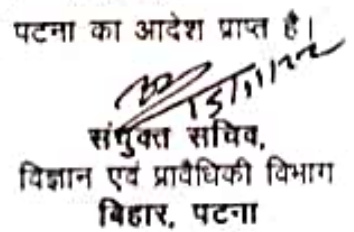 पटना का आदेश प्राप्त है।
15/11/22
संयुक्त सचिव,
विज्ञान एवं प्रावैधिकी विभाग
बिहार, पटना